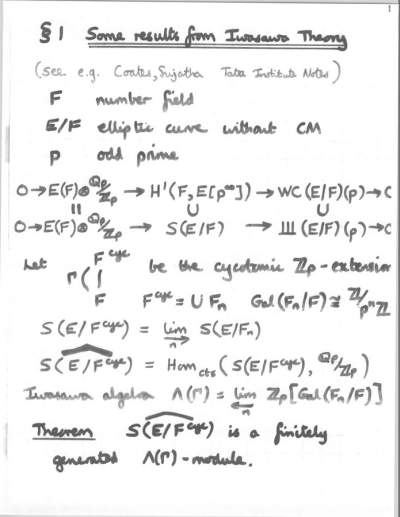 1
§1 Some results from Iwasawa Theory
(see e.g. Coates, Sujatha Tata Institute Notes)
F number field
E/F elliptic curve without CM
p odd prime
O→E(F)⊗Qp/Zp → H'(F, E[p^∞]) → WC(E/F)(p)→O
|| ∪ ∪
O→E(F)⊗Qp/Zp → S(E/F) → Ш(E/F)(p)→O
Let F^cyc be the cycotomic Zp-extension
Γ( |
F F^cyc = ∪ Fn Gal(Fn/F) ≅ Z/p^nZ
S(E/F^cyc) = lim→n S(E/Fn)
S(E/F^cyc)^ = Hom_cts(S(E/F^cyc), Qp/Zp)
Iwasawa algebra Λ(Γ) = lim←n Zp[Gal(Fn/F)]
Theorem S(E/F^cyc)^ is a finitely
generated Λ(Γ)-module.